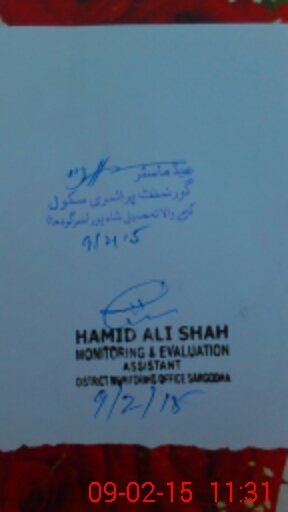 ھیڈ ماسٹر
گورنمنٹ پرائمری سکول
والا تحصیل شاہ پور سرگودھا
9/2/15
HAMID ALI SHAH
MONITORING & EVALUATION
ASSISTANT
DISTRICT MONITORING OFFICE SARGODHA
9/2/15
09-02-15 11:31